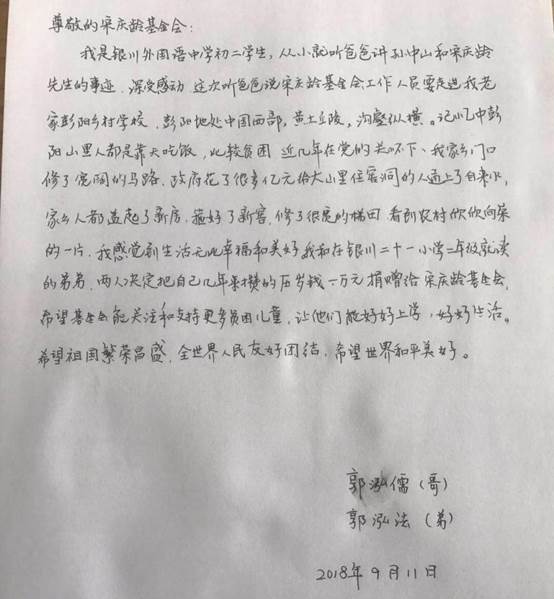 尊敬的宋庆龄基金会：
我是银川外国语中学初二学生，从小就听爸爸讲孙中山和宋庆龄
先生的事迹，深受感动，这次听爸爸说宋庆龄基金会工作人员要走进我老
家彭阳乡村学校，彭阳地处中国西部，黄土丘陵，沟壑纵横。记忆中彭
阳山里人都是靠天吃饭，比较贫困，近几年在党的关怀下、我家乡门口
修了宽阔的马路、政府花了很多亿元给大山里住窑洞的人通上了自来水，
家乡人都盖起了新房、箍好了新窑、修了很宽的梯田，看到农村欣欣向荣
的一片，我感觉到生活无比幸福和美好，我和在银川二十一小学二年级就读
的弟弟，两人决定把自己几年来攒的压岁钱一万元捐赠给宋庆龄基金会，
希望基金会能关注和支持更多贫困儿童，让他们能好好上学，好好生活。
希望祖国繁荣昌盛，全世界人民友好团结，希望世界和平美好。
郭泓儒（哥）
郭泓法（弟）
2018年9月11日